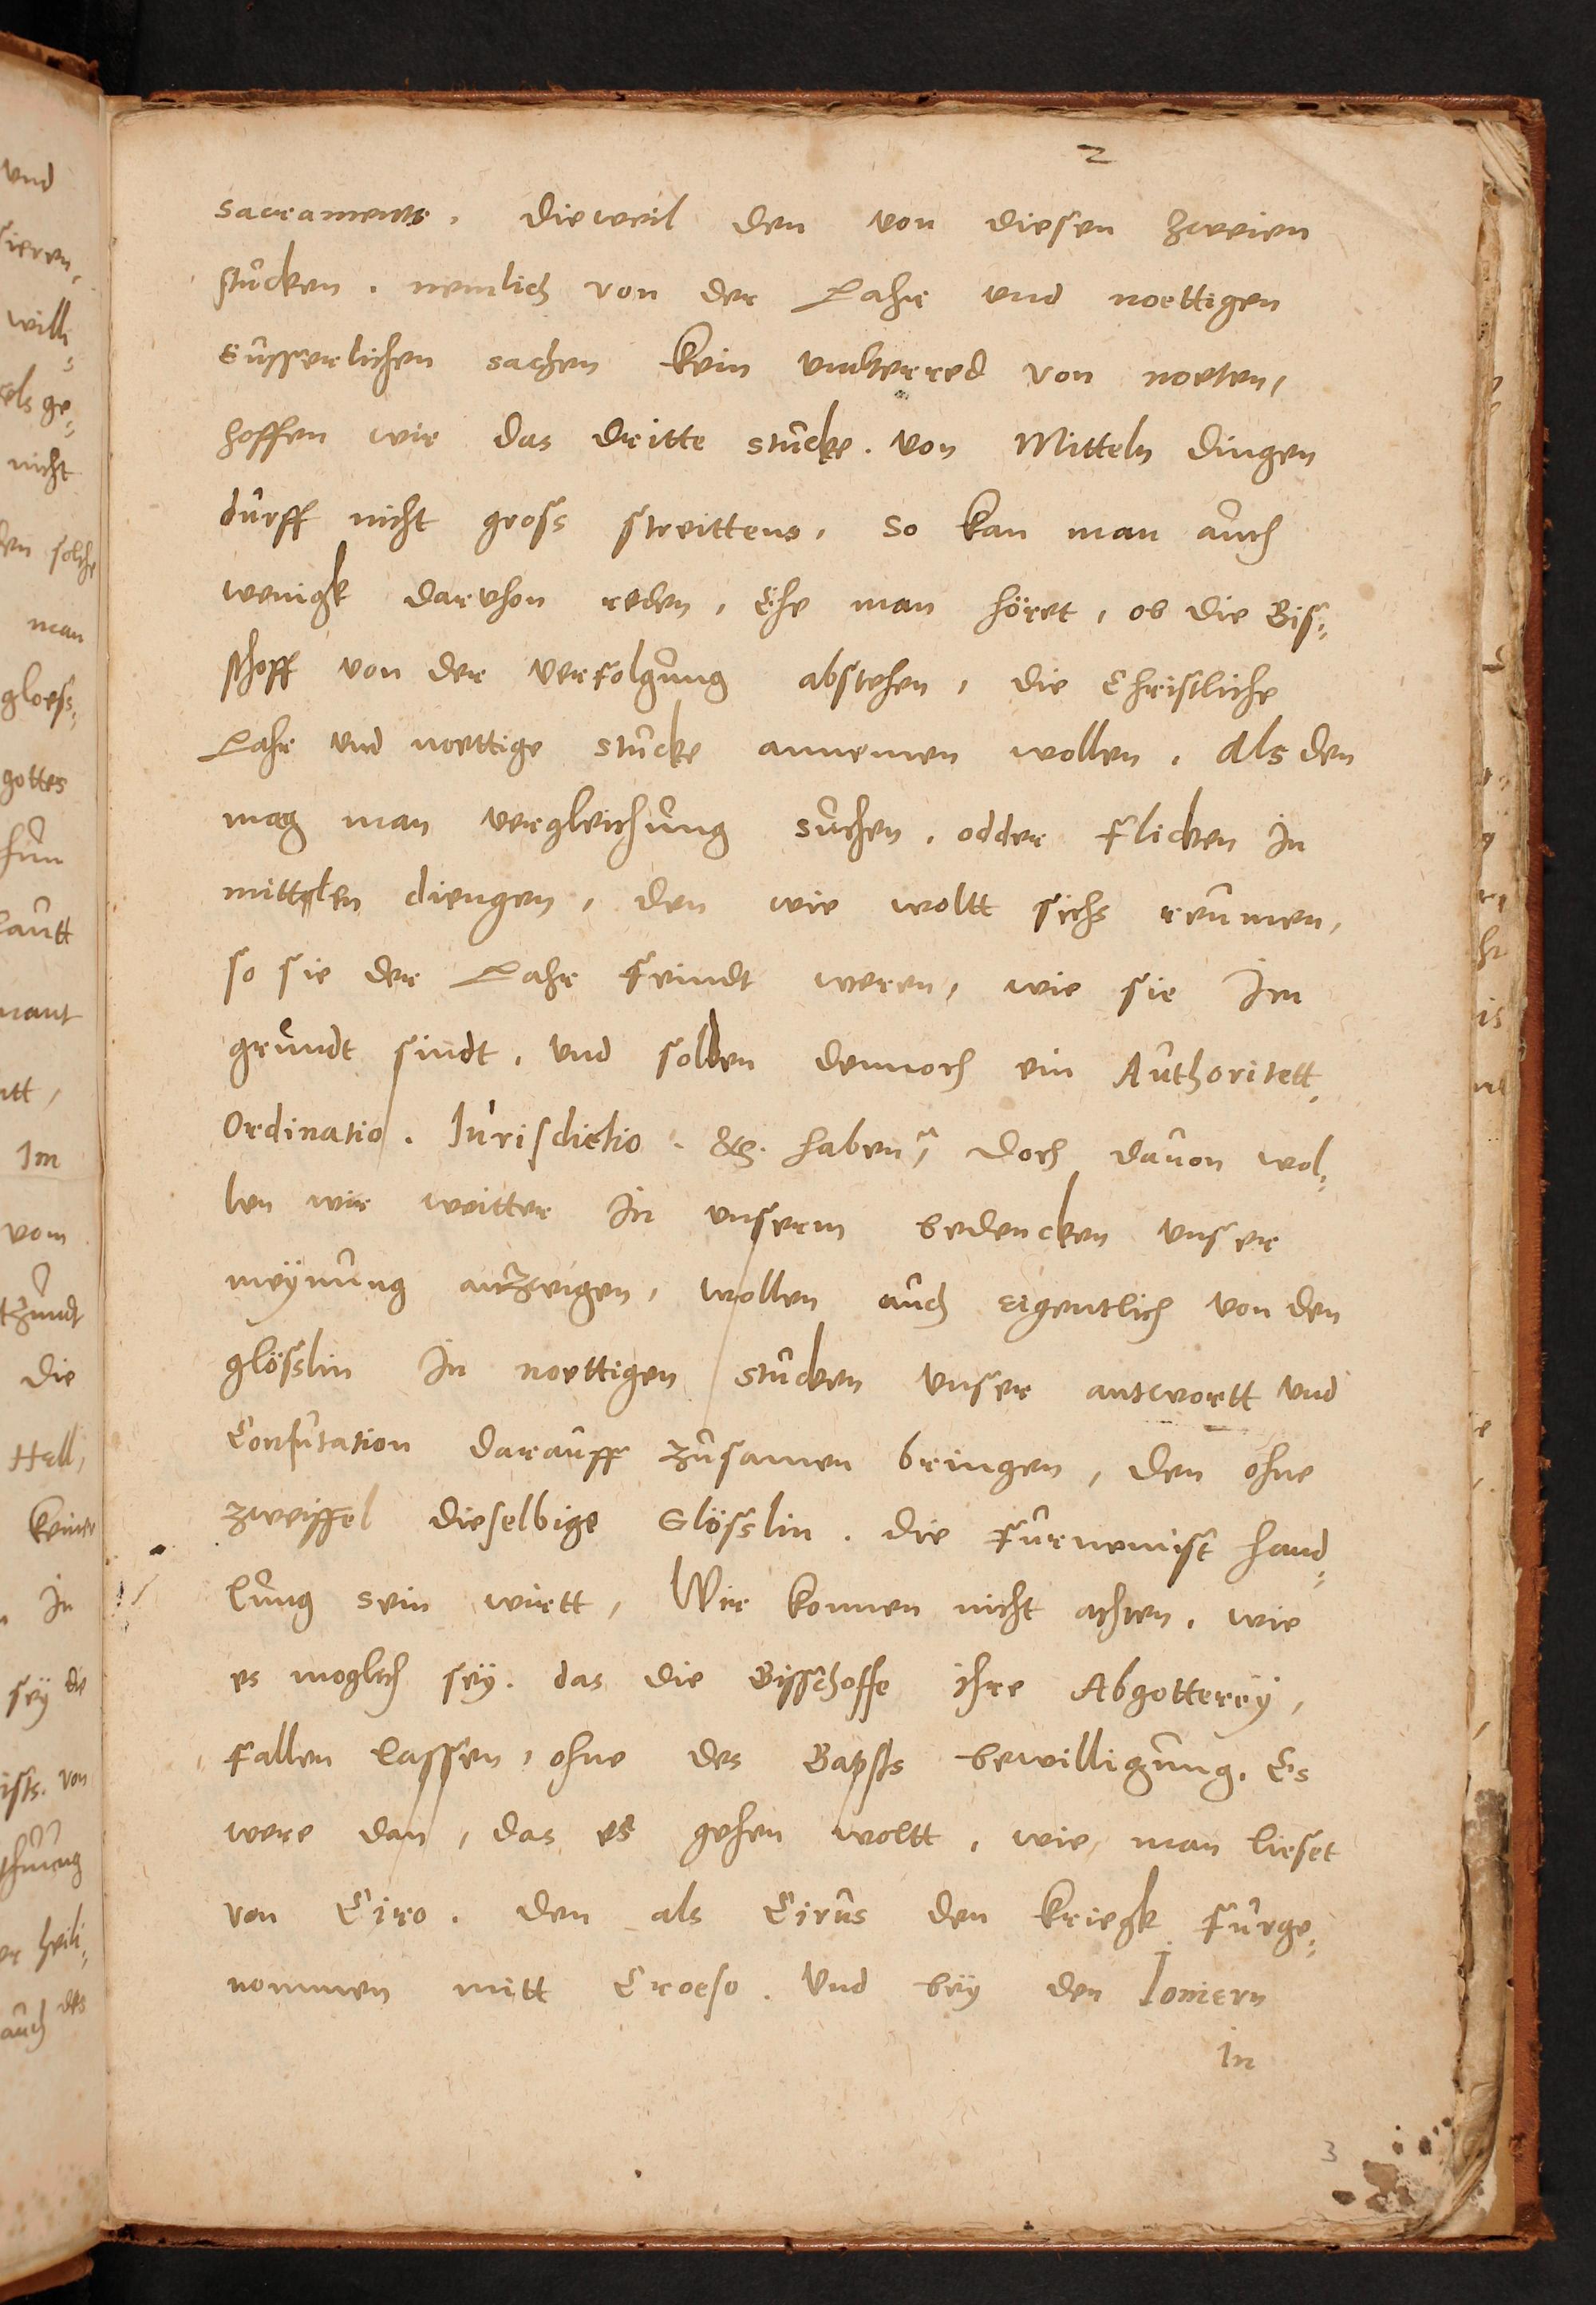 2
sacraments. dieweil den von diesen zweien
stucken. nemlich von der Lahr und noettigen
eusserlichen sachen kein underred von noeten,
hoffen wir das dritte stucke. von Mitteln dingen
durff nicht gross streittens, so kan man auch
wenigk darvhon reden, Ehe man höret, ob die Bis-
schoff von der verfolgung abstehen, die Christliche
Lahr und noettige stucke annemen wollen. Als den
mag man vergleichung suchen. odder flicken in
mittelen diengen, den wie woltt sichs reumen,
so sie der Lahr feindt weren, wie sie Im
grundt sindt. und sollen dennoch ein Authoritett,
Ordinatio. Jurisdictio. &c. haben, doch davon wol-
len wir weitter in unserm bedencken unser
meÿnung anzeigen, wollen auch eigentlich von den
glösslin in noettigen stucken unser antwortt und
Confutation darauff zusamen bringen, den ohne
zweiffel dieselbige Glösslin. die furnemist hand-
lung sein wirtt, Wir konnen nicht achten. wie
es moglich seÿ. das die Bisschoffe ihre Abgottereÿ,
fallen lassen, ohne des Bapsts bewilligung. Es
were dan, das es gehen woltt, wie man lieset
von Ciro. den als Cirus den kriegk furge-
nommen mitt Croeso. und beÿ den Ioniern
in
3